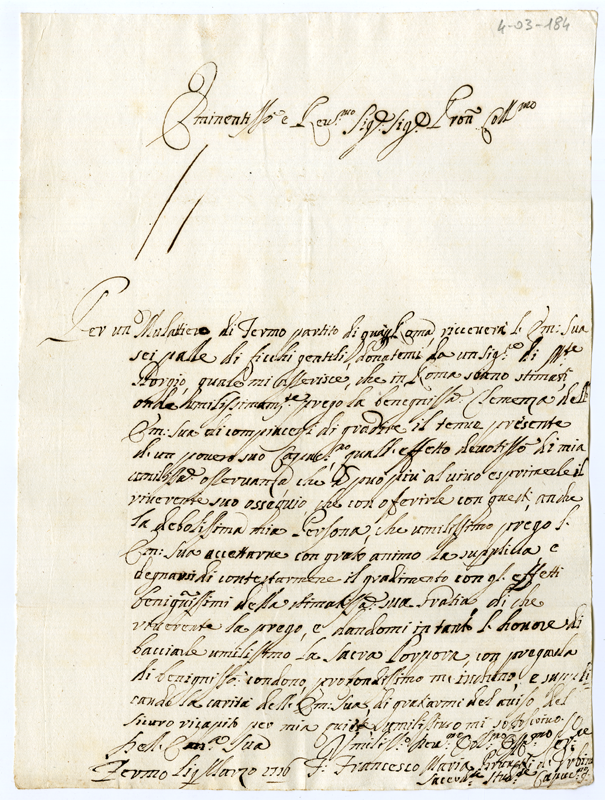 4-03-184
Eminentiss.o e Reu.mo Sig.r Sig.r Pron Coll.mo
Per un Mulattiere di Fermo partito di quà p Roma riceverà l'Em: Sua
sei palle di ficchi gentili, donatemi da un Sig.re di M.te
Giorgio, quale mi asserisce, che in Roma siano stimati
onde umilissimam.te prego la benegniss.a Clemenza dell'
Em: Sua à compiacersi di gradire il tenue presente
di un povero suo Capuc.no qual'effetto devotiss.o di mia
umiliss.a osservanza che può più al vivo esprimerle il
riverente suo ossequio, che con offerirle con questi anche
la debolissima mia Persona, che umilissimo prego l'
Em: Sua accettarne con grato animo la supplica e
degnarsi di contestarmene il gradimento con gl'effetti
benignissimi della stimatiss.a sua Gratia, di che
riverente la prego, e dandomi intanto l'honore di
bacciarle umilissimo la Sacra Porpora, con pregarla
di benigniss.o condono, profondissimo me inchino, e suppli
cando la carità dell'Em: Sua di gratiarmi del aviso del
sicuro ricapito per mia quiete umilissimo mi sottoscrivo
Dell'Em.a Sua
Umiliss.o Deu.mo Obl.mo
Fermo li Marzo 1716 F. Francesco Maria d'Urbino
Sacerd.te Capuc.no